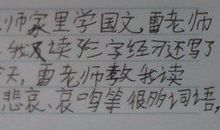 师家里学国文,雷老师
,我不读弟三字经还写了
天,雷老师教我读
悲哀、哀鸣等很多词语,